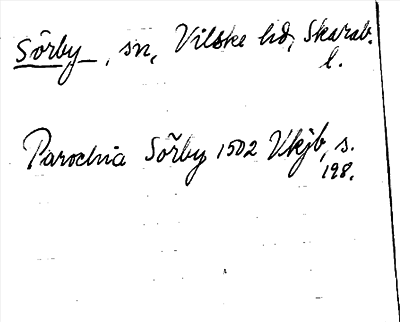 Sörby, sn, Vilske hd, Skarab.
l.
Parochia Sörby 1502 Vkjb, s.
198.